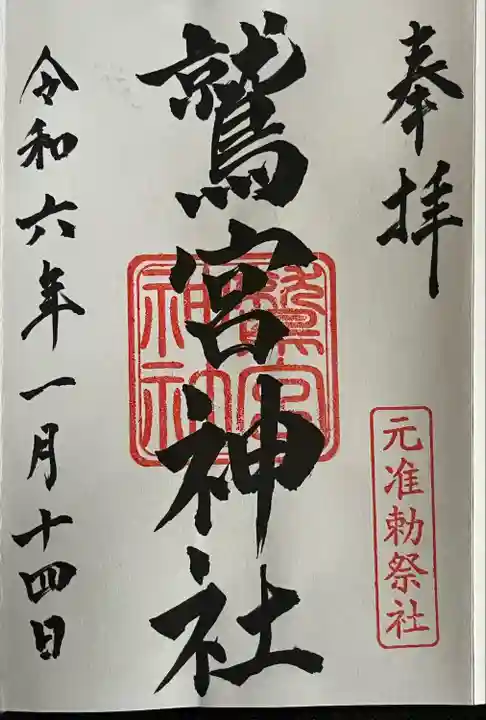 奉拝
元准勅祭社
鷲宮神社
鷲宮
神社
令和六年一月十四日